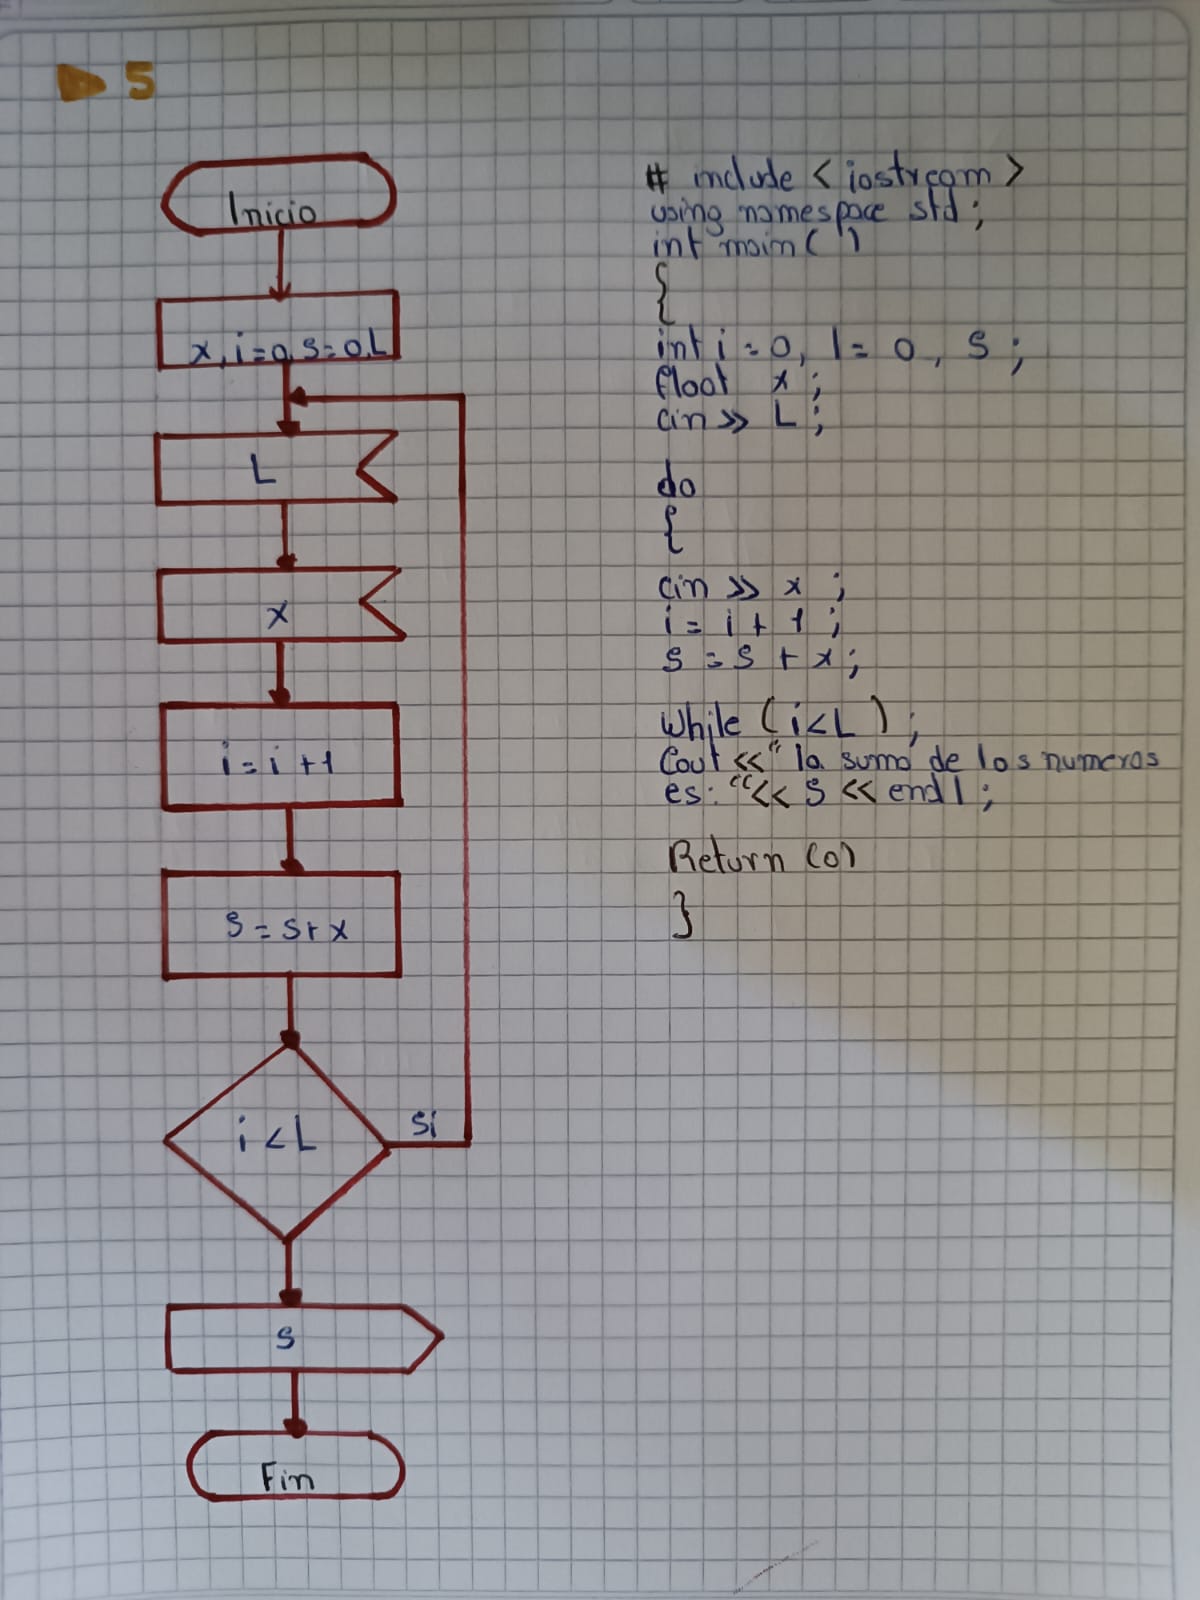 5
Inicio
x, i=0, S=0, L
L
x
i=i+1
S=S+x
i<L
Si
S
Fin
# include <iostream>
using namespace std;
int main()
{
int i=0, l=0, S;
float x;
cin >> L;
do
{
cin >> x;
i=i+1;
S=S+x;
while (i<L);
Cout <<" la suma de los numeros
es: "<< S << endl;
Return (0)
}